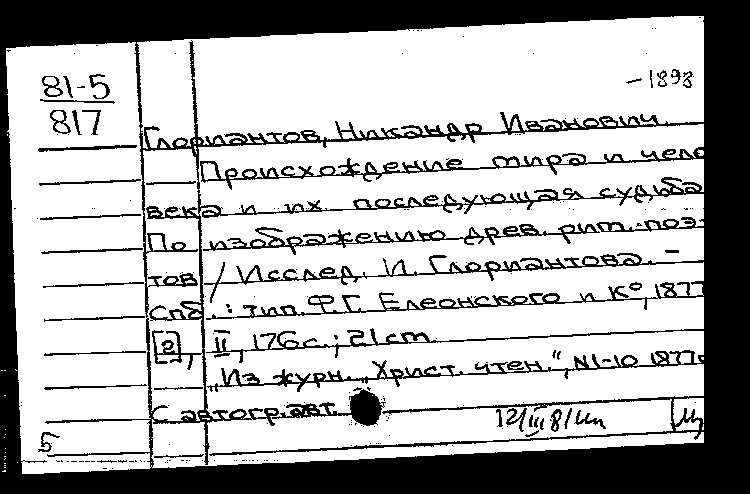 81-5
817
-1898
Глориантов, Никандр Иванович.
Происхождение мира и чело
века и их последующая судьба
По изображению древ. рим. поэ-
тов / Исслед. И. Глориантова. -
Спб. : тип. Ф.Г. Елеонского и К°, 1877
[2], II, 176с.; 21см.
„Из журн. „Христ. чтен.", N1-10 1877г
С автогр. авт.
12/III 81
5